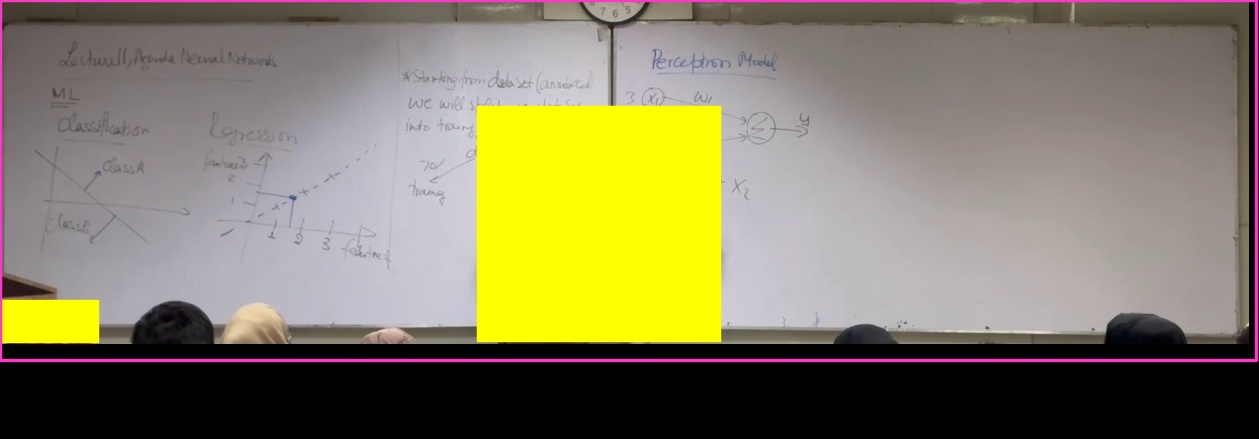 Lecture11, Agenda Neural Networks
ML
Classification
Class A
Class B
Regression
feature3
2
1
1 2 3
feature1
*Starting from dataset (annotated)
we will
into
70%
Perceptron Model
3 X1 W1
Σ y
X2
7 6 5